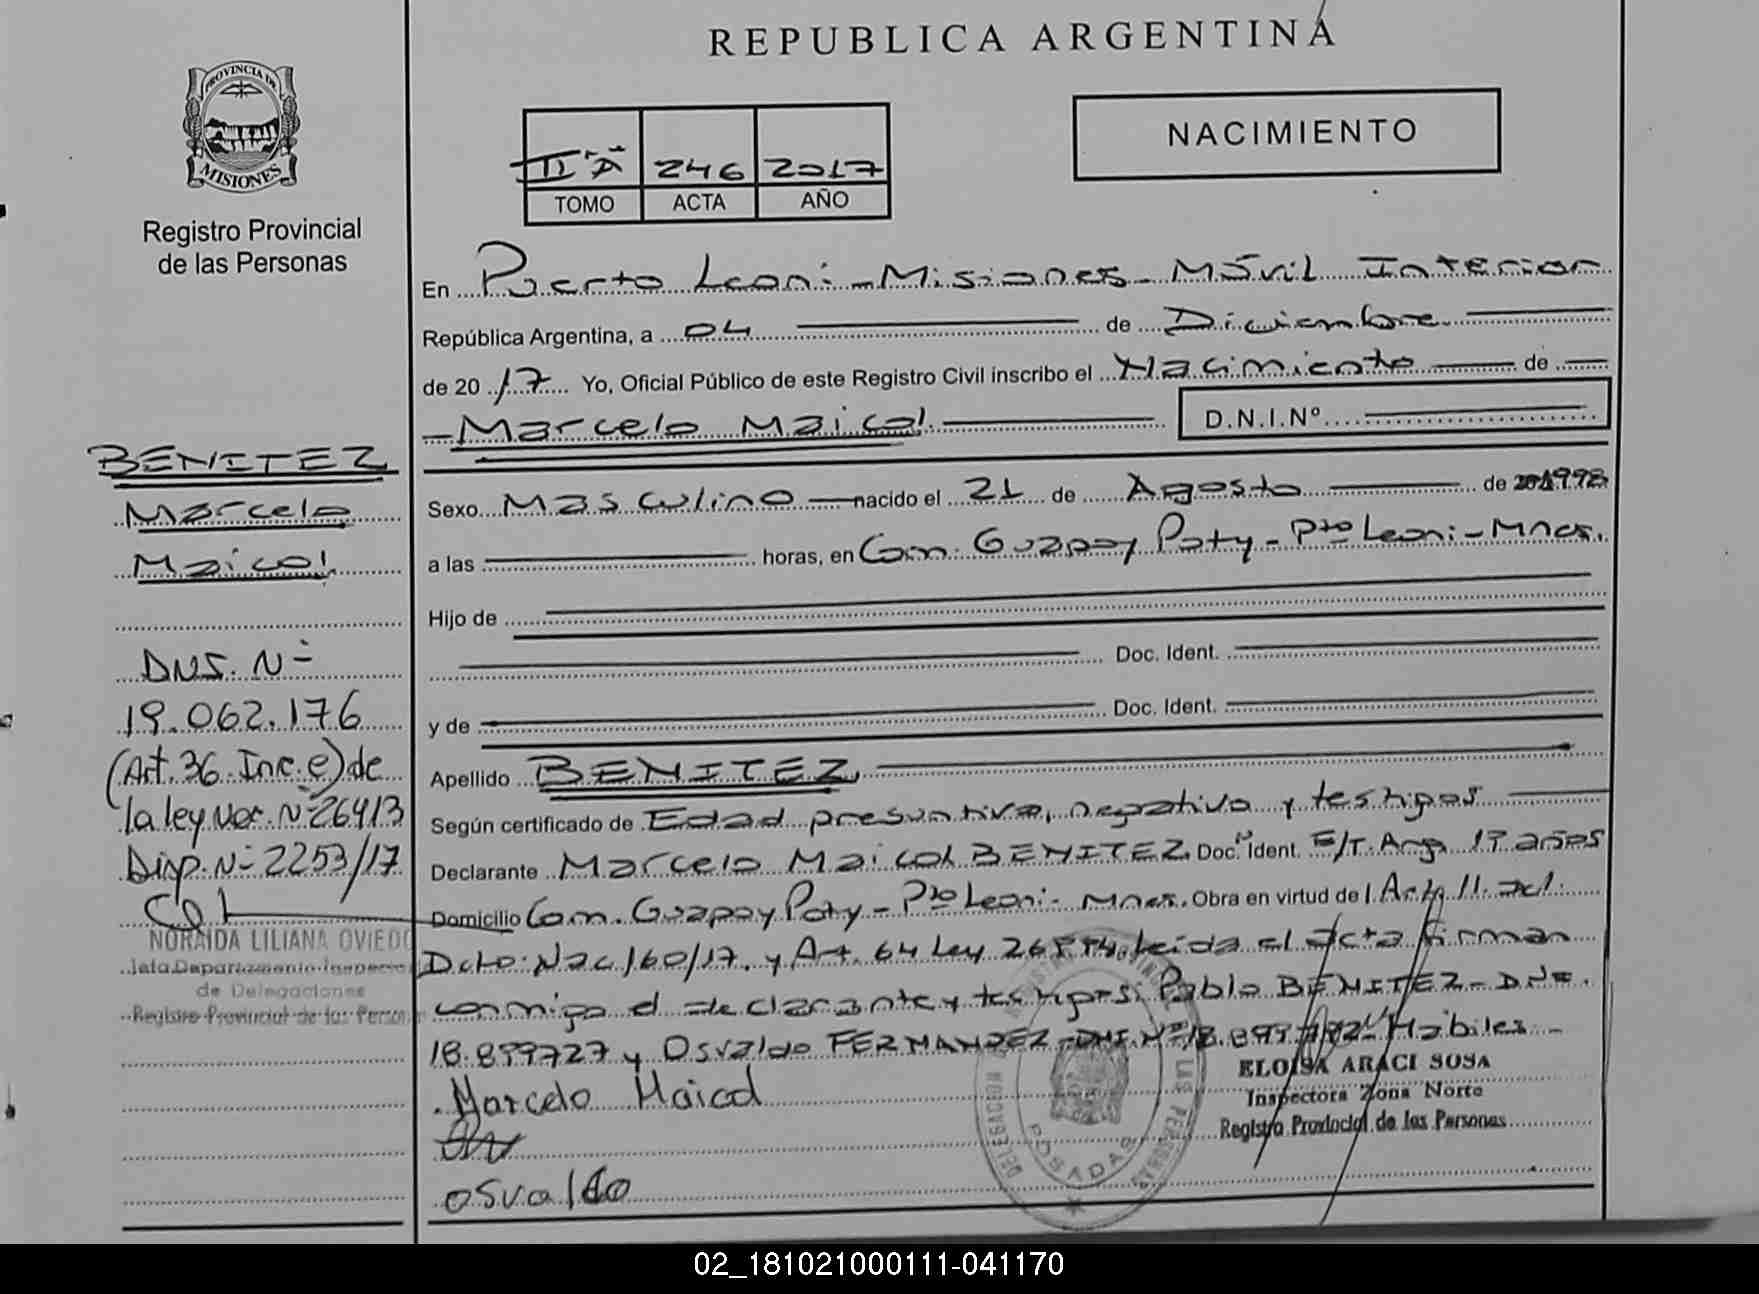 REPUBLICA ARGENTINA
PROVINCIA DE
MISIONES
Registro Provincial
de las Personas
II "A" 246 2017
TOMO ACTA AÑO
NACIMIENTO
En Puerto Leoni - Misiones - Móvil Interior
República Argentina, a 04 de Diciembre
de 2017 Yo, Oficial Público de este Registro Civil inscribo el Nacimiento de
- Marcelo Maicol D.N.I.Nº
Sexo Masculino nacido el 21 de Agosto de 1998
a las horas, en Com. Guapoy Poty - Pto Leoni - Mnes.
Hijo de
Doc. Ident.
y de Doc. Ident.
Apellido BENITEZ
Según certificado de Edad presuntiva, negativo y testigos
Declarante Marcelo Maicol BENITEZ Doc. Ident. F/T. Arg. 19 años
Domicilio Com. Guapoy Poty - Pto Leoni - Mnes. Obra en virtud del Art. 11. del
Dcto. Nac 160/17, y Art. 64 Ley 26.994. Leída el acta firman
conmigo el declarante y testigos: Pablo BENITEZ - DNI.
18.899727 y Osvaldo FERNANDEZ - DNI. Nº 18. Habiles -
Marcelo Maicol
osvaldo
ELOISA ARACI SOSA
Inspectora Zona Norte
Registro Provincial de las Personas
POSADAS
BENITEZ
Marcelo
Maicol
DNI. Nº
19.062.176
(Art. 36 Inc. e) de
la ley Nac. Nº 26413
Disp. Nº 2253/17
NORAIDA LILIANA OVIEDO
Jefa Departamento Inspecc
de Delegaciones
Registro Provincial de las Person
02_181021000111-041170